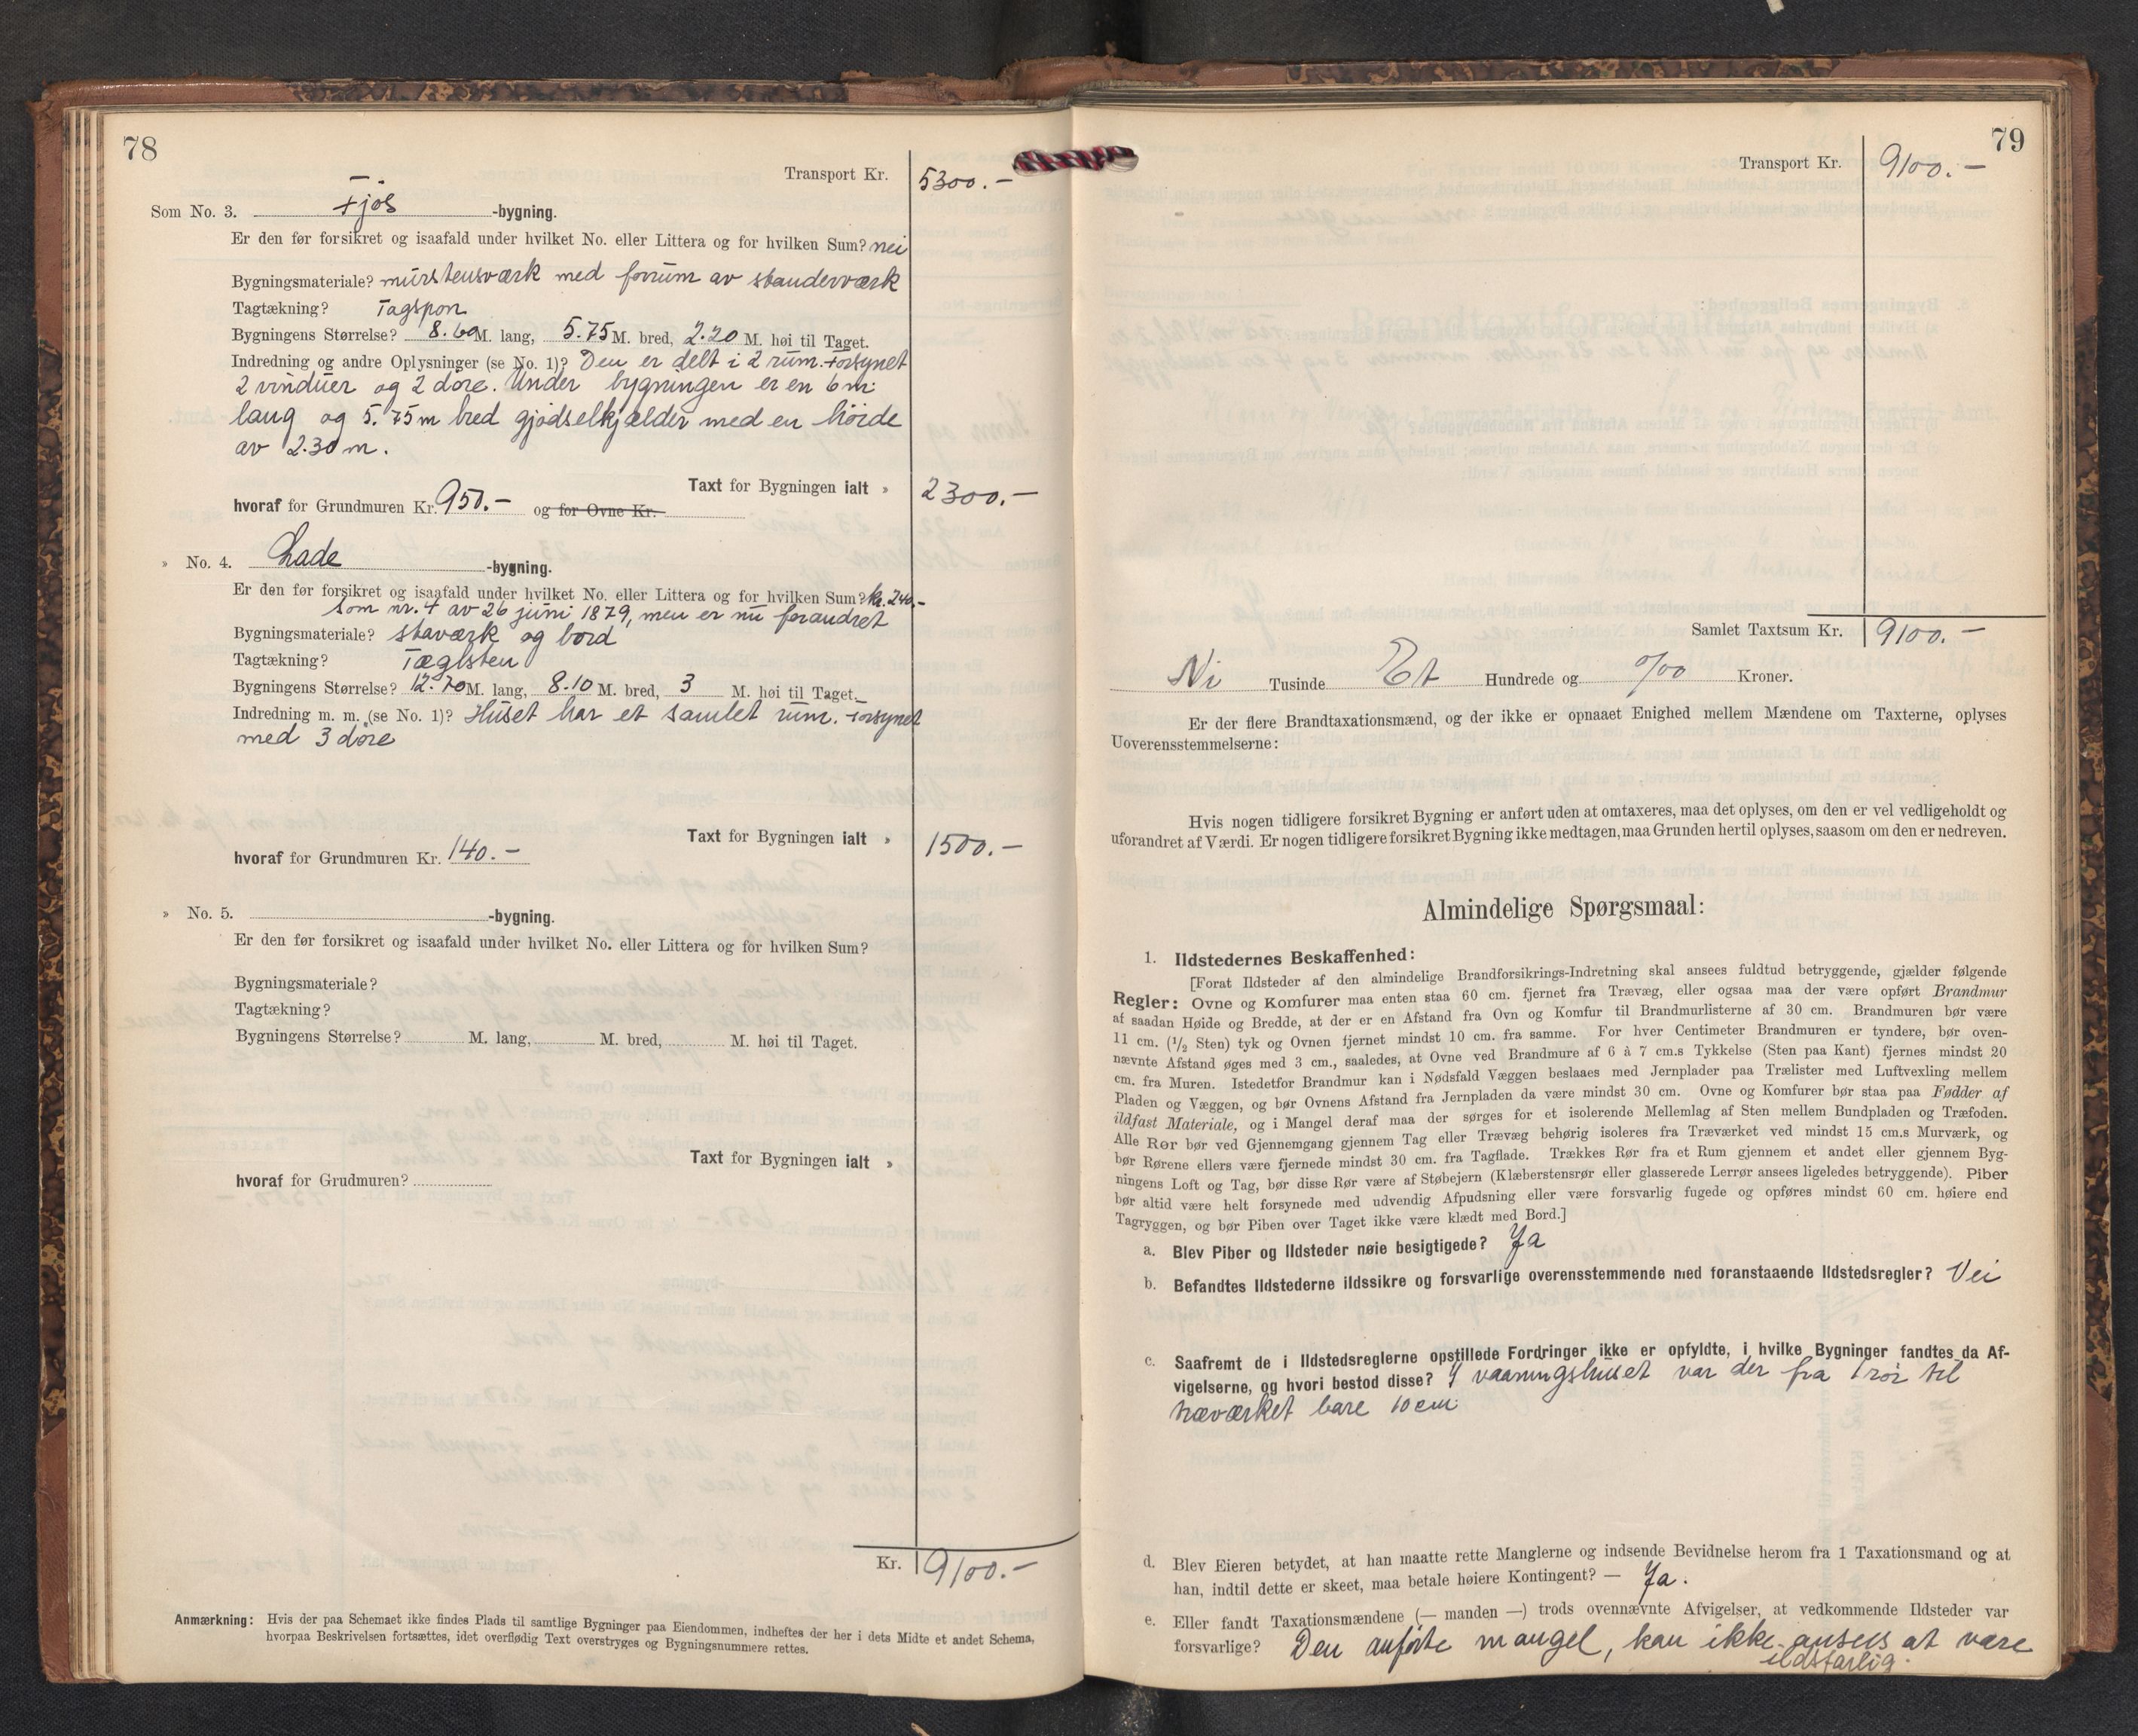 78
Transport Kr. 5300.-
Som No. 3. Fjös -bygning.
Er den før forsikret og isaafald under hvilket No. eller Littera og for hvilken Sum? nei
Bygningsmateriale? murstensværk med forrum av standerværk
Tagtækning? Tagspon
Bygningens Størrelse? 8.60 M. lang, 5.75 M. bred, 2.20 M. høi til Taget.
Indredning og andre Oplysninger (se No. 1)? Den er delt i 2 rum. Forsynet
2 vinduer og 2 döre. Under bygningen er en 6 m.
lang og 5.75 m bred gjødselkjælder med en höide
av 2.30 m.
Taxt for Bygningen ialt » 2300.-
hvoraf for Grundmuren Kr. 950.- og for Ovne Kr.
» No. 4. Lade -bygning.
Er den før forsikret og isaafald under hvilket No. eller Littera og for hvilken Sum? Kr. 240.-
som nr. 4 av 26 juni 1879, men er nu forandret
Bygningsmateriale? staværk og bord
Tagtækning? Tæglsten
Bygningens Størrelse? 12.70 M. lang, 8.10 M. bred, 3 M. høi til Taget.
Indredning m. m. (se No. 1)? Huset har et samlet rum. Forsynet
med 3 döre
Taxt for Bygningen ialt » 1500.-
hvoraf for Grundmuren Kr. 140.-
» No. 5. -bygning.
Er den før forsikret og isaafald under hvilket No. eller Littera og for hvilken Sum?
Bygningsmateriale?
Tagtækning?
Bygningens Størrelse? M. lang, M. bred, M. høi til Taget.
Taxt for Bygningen ialt »
hvoraf for Grudmuren?
Kr. 9100.-
Anmærkning: Hvis der paa Schemaet ikke findes Plads til samtlige Bygninger paa Eiendommen, indheftes der her i dets Midte et andet Schema,
hvorpaa Beskrivelsen fortsættes, idet overflødig Text overstryges og Bygningsnummere rettes.
79
Transport Kr. 9100.-
Samlet Taxtsum Kr. 9100.-
Ni Tusinde Et Hundrede og 0/00 Kroner.
Er der flere Brandtaxationsmænd, og der ikke er opnaaet Enighed mellem Mændene om Taxterne, oplyses
Uoverensstemmelserne:
Hvis nogen tidligere forsikret Bygning er anført uden at omtaxeres, maa det oplyses, om den er vel vedligeholdt og
uforandret af Værdi. Er nogen tidligere forsikret Bygning ikke medtagen, maa Grunden hertil oplyses, saasom om den er nedreven.
Almindelige Spørgsmaal:
1. Ildstedernes Beskaffenhed:
[Forat Ildsteder af den almindelige Brandforsikrings-Indretning skal ansees fuldtud betryggende, gjælder følgende
Regler: Ovne og Komfurer maa enten staa 60 cm. fjernet fra Trævæg, eller ogsaa maa der være opført Brandmur
af saadan Høide og Bredde, at der er en Afstand fra Ovn og Komfur til Brandmurlisterne af 30 cm. Brandmuren bør være
11 cm. (1/2 Sten) tyk og Ovnen fjernet mindst 10 cm. fra samme. For hver Centimeter Brandmuren er tyndere, bør oven-
nævnte Afstand øges med 3 cm., saaledes, at Ovne ved Brandmure af 6 à 7 cm.s Tykkelse (Sten paa Kant) fjernes mindst 20
cm. fra Muren. Istedetfor Brandmur kan i Nødsfald Væggen beslaaes med Jernplader paa Trælister med Luftvexling mellem
Pladen og Væggen, og bør Ovnens Afstand fra Jernpladen da være mindst 30 cm. Ovne og Komfurer bør staa paa Fødder af
ildfast Materiale, og i Mangel deraf maa der sørges for et isolerende Mellemlag af Sten mellem Bundpladen og Træfoden.
Alle Rør bør ved Gjennemgang gjennem Tag eller Trævæg behørig isoleres fra Træværket ved mindst 15 cm.s Murværk, og
bør Rørene ellers være fjernede mindst 30 cm. fra Tagflade. Trækkes Rør fra et Rum gjennem et andet eller gjennem Byg-
ningens Loft og Tag, bør disse Rør være af Støbejern (Klæberstensrør eller glasserede Lerrør ansees ligeledes betryggende). Piber
bør altid være helt forsynede med udvendig Afpudsning eller være forsvarlig fugede og opføres mindst 60 cm. høiere end
Tagryggen, og bør Piben over Taget ikke være klædt med Bord.]
a. Blev Piber og Ildsteder nøie besigtigede? Ja
b. Befandtes Ildstederne ildssikre og forsvarlige overensstemmende med foranstaaende Ildstedsregler? Nei
c. Saafremt de i Ildstedsreglerne opstillede Fordringer ikke er opfyldte, i hvilke Bygninger fandtes da Af-
vigelserne, og hvori bestod disse? I vaaningshuset var der fra 1 rör til
træværket bare 10 cm.
d. Blev Eieren betydet, at han maatte rette Manglerne og indsende Bevidnelse herom fra 1 Taxationsmand og at
han, indtil dette er skeet, maa betale høiere Kontingent? — Ja.
e. Eller fandt Taxationsmændene (— manden —) trods ovennævnte Afvigelser, at vedkommende Ildsteder var
forsvarlige? Den anförte mangel, kan ikke ansees at være
ildsfarlig.